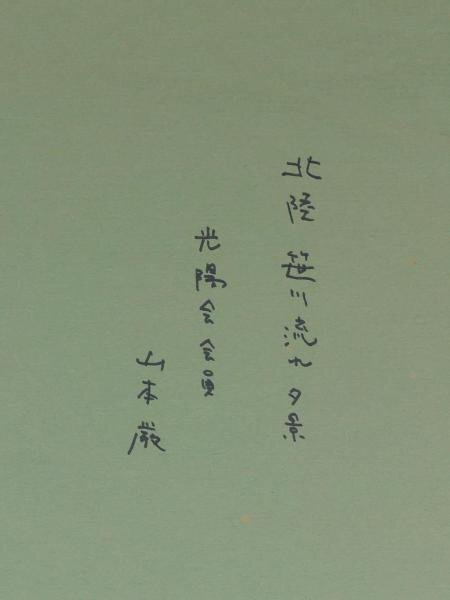 北陸 笹川流れ夕景
光陽会会員
山本巌